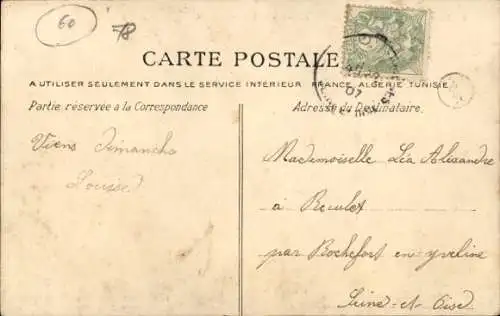 60
78
CARTE POSTALE
A UTILISER SEULEMENT DANS LE SERVICE INTERIEUR FRANCE, ALGERIE, TUNISIE
Partie réservée à la Correspondance
Adresse du Destinataire
Viens Dimanche
Louise
Mademoiselle Léa Alixandre
à
par Rochefort en-yveline
Seine-et-Oise